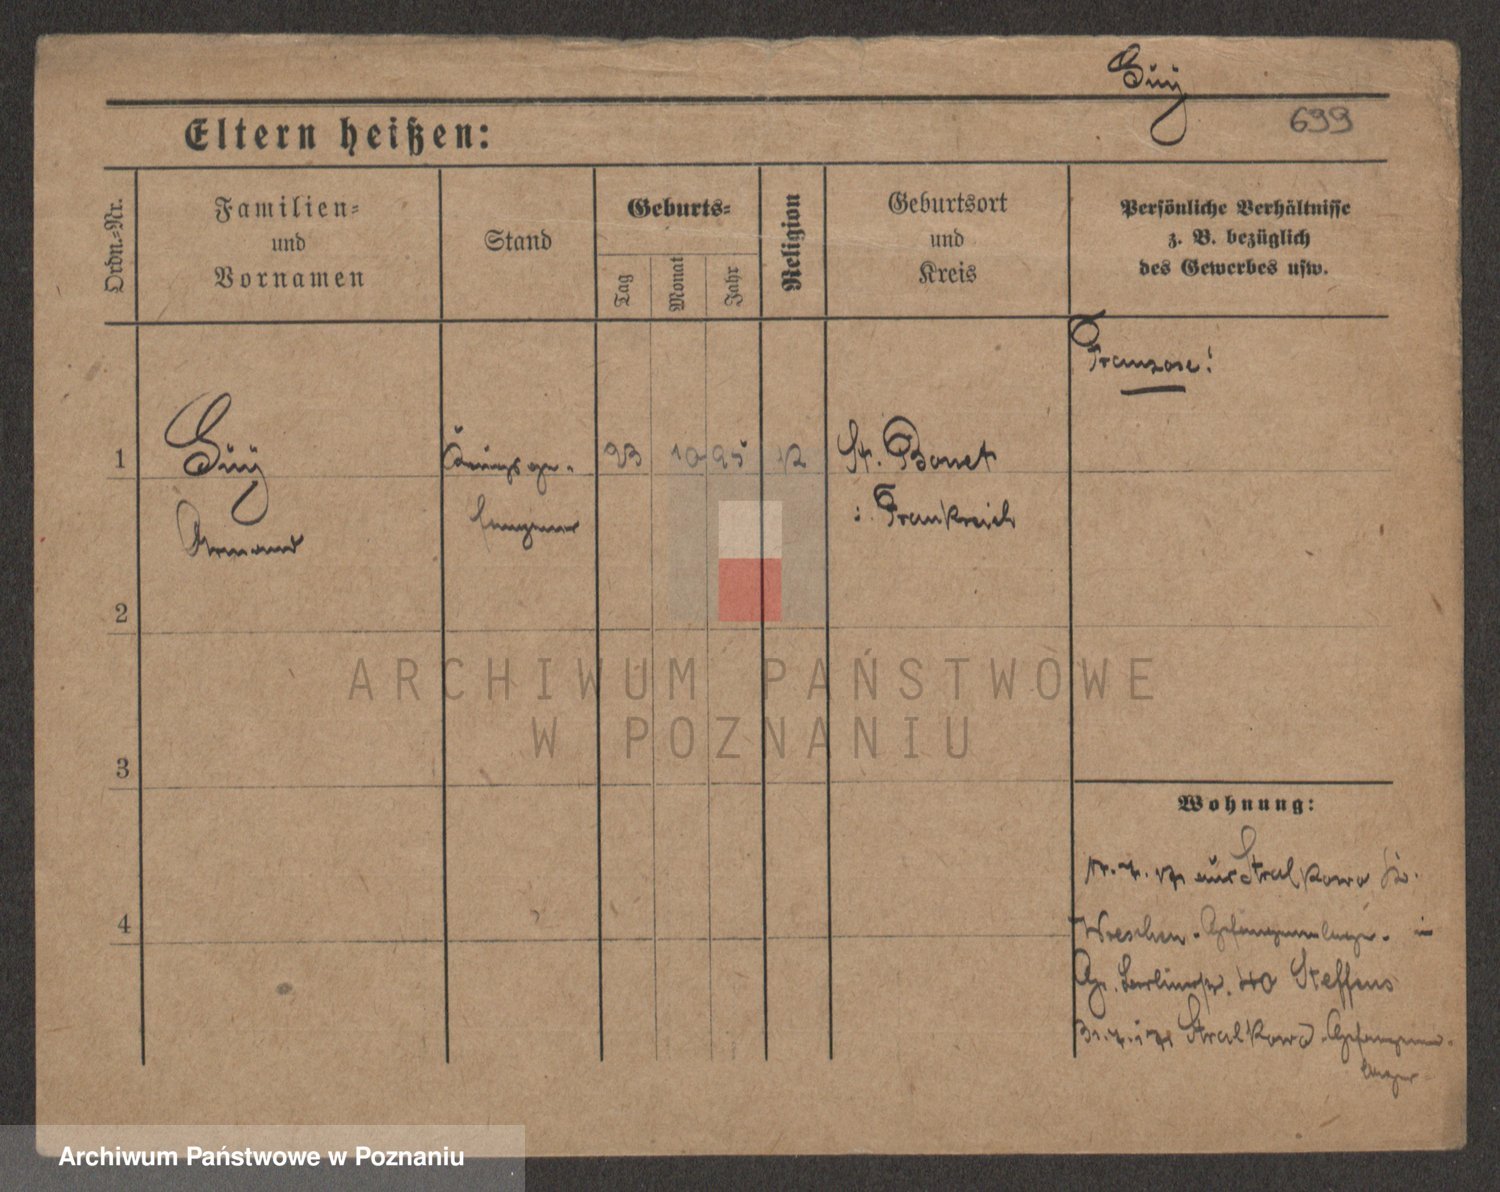 Güÿ
699
Eltern heißen:
Ordn.-Nr.
Familien-
und
Vornamen
Stand
Geburts-
Tag
Monat
Jahr
Religion
Geburtsort
und
Kreis
Persönliche Verhältnisse
z. B. bezüglich
des Gewerbes usw.
Franzose!
1
Güÿ
Kriegsge-
23 10 95
St. Bonet
i. Frankreich
Armand
fangener
2
3
4
ARCHIWUM PAŃSTWOWE
W POZNANIU
Wohnung:
aus Stralkowo
Wreschen. Gefangenenlager. in
Berlinerstr. 40 Steffens
Stralkowo. Gefangenen-
lager
Archiwum Państwowe w Poznaniu